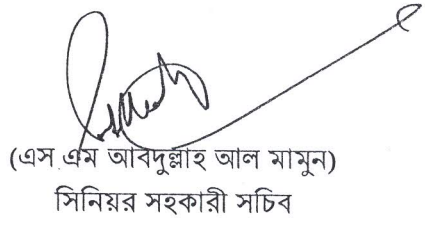 (এস এম আবদুল্লাহ আল মামুন)
সিনিয়র সহকারী সচিব